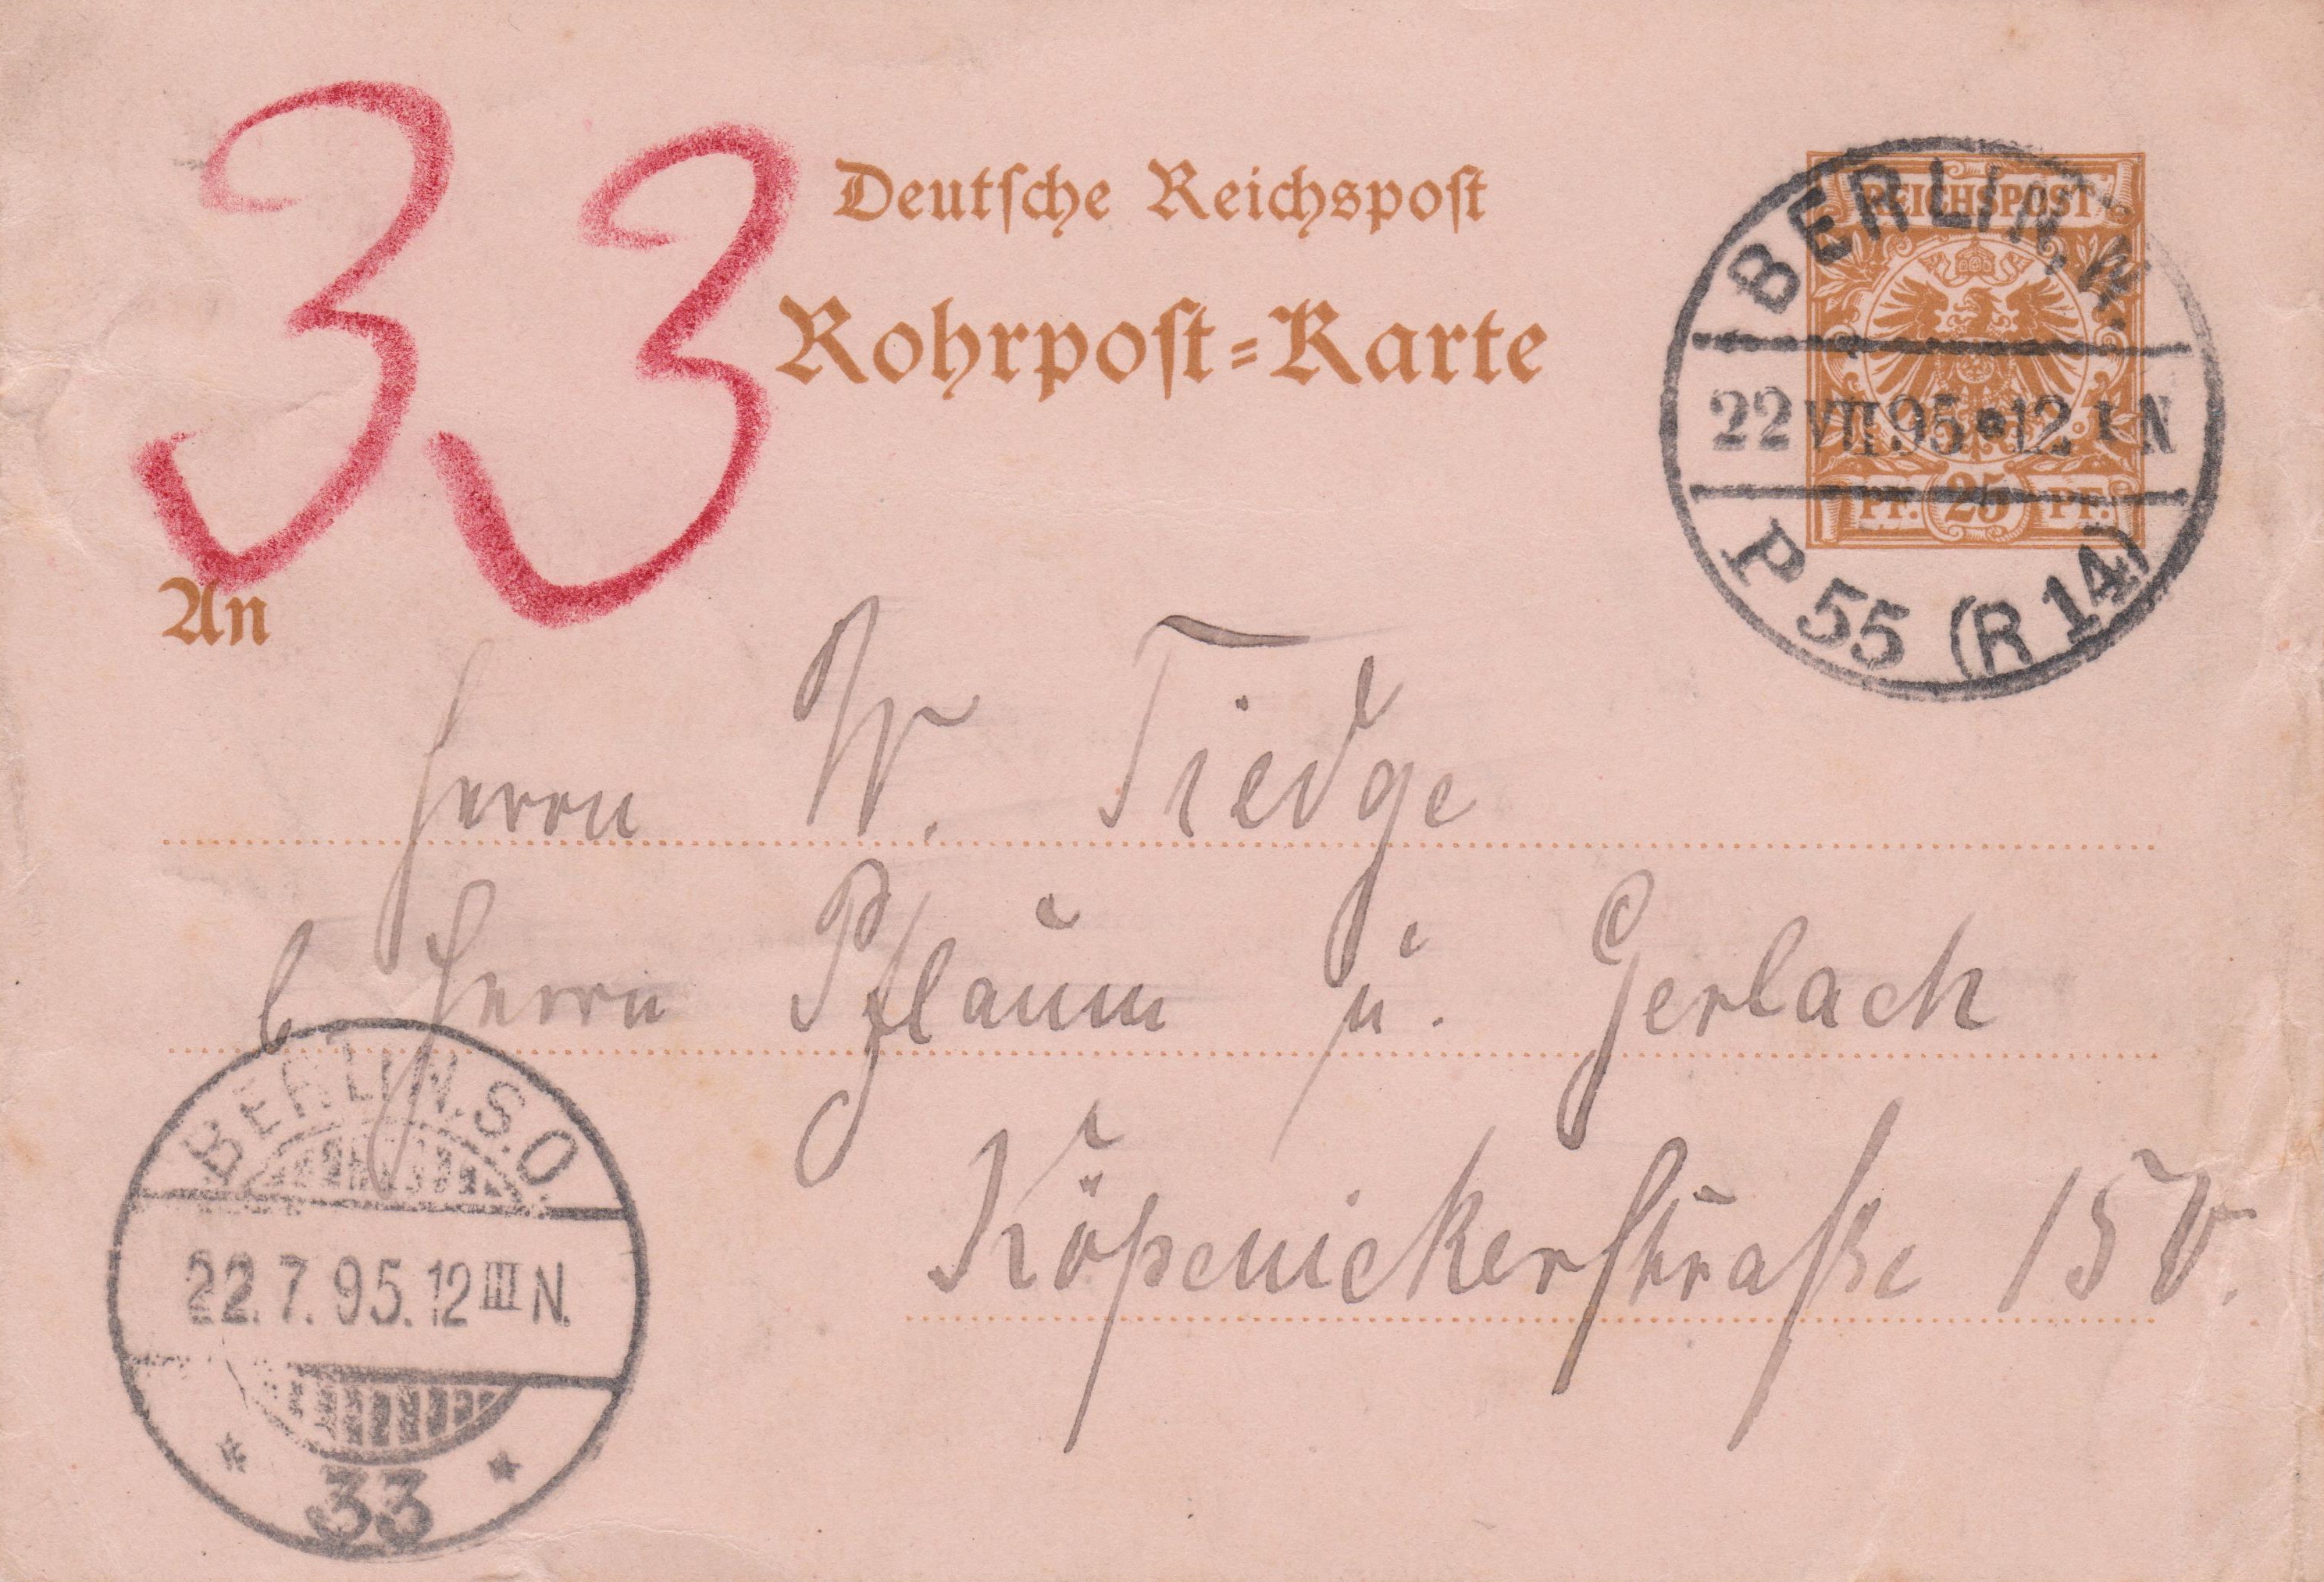 33
Deutsche Reichspost
Rohrpost-Karte
REICHSPOST
PF. 25 PF.
BERLIN, W.
22 VII 95 * 12 I N
P 55 (R 14)
An
Herrn W. Tiedge
b Herrn Pflaum u. Gerlach
Köpenickerstraße
BERLIN.S.O.
22.7.95.12 III N.
* 33 *